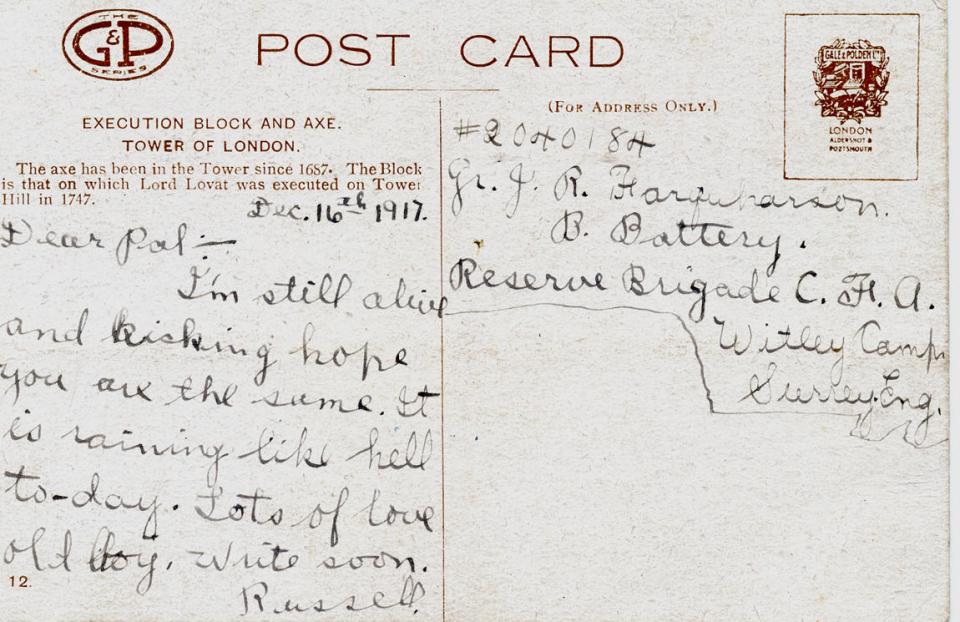 THE
G&P
SERIES
POST CARD
GALE & POLDEN LTD
LONDON
ALDERSHOT &
PORTSMOUTH
(FOR ADDRESS ONLY.)
EXECUTION BLOCK AND AXE.
TOWER OF LONDON.
The axe has been in the Tower since 1687. The Block
is that on which Lord Lovat was executed on Tower
Hill in 1747.
Dec. 16th 1917.
Dear Pal:—
I'm still alive
and kicking hope
you are the same. It
is raining like hell
to-day. Lots of love
old boy. Write soon.
Russell.
12.
#2040184
Gr. J. R. Farquharson.
B. Battery.
Reserve Brigade C. F. A.
Witley Camp
Surrey Eng.